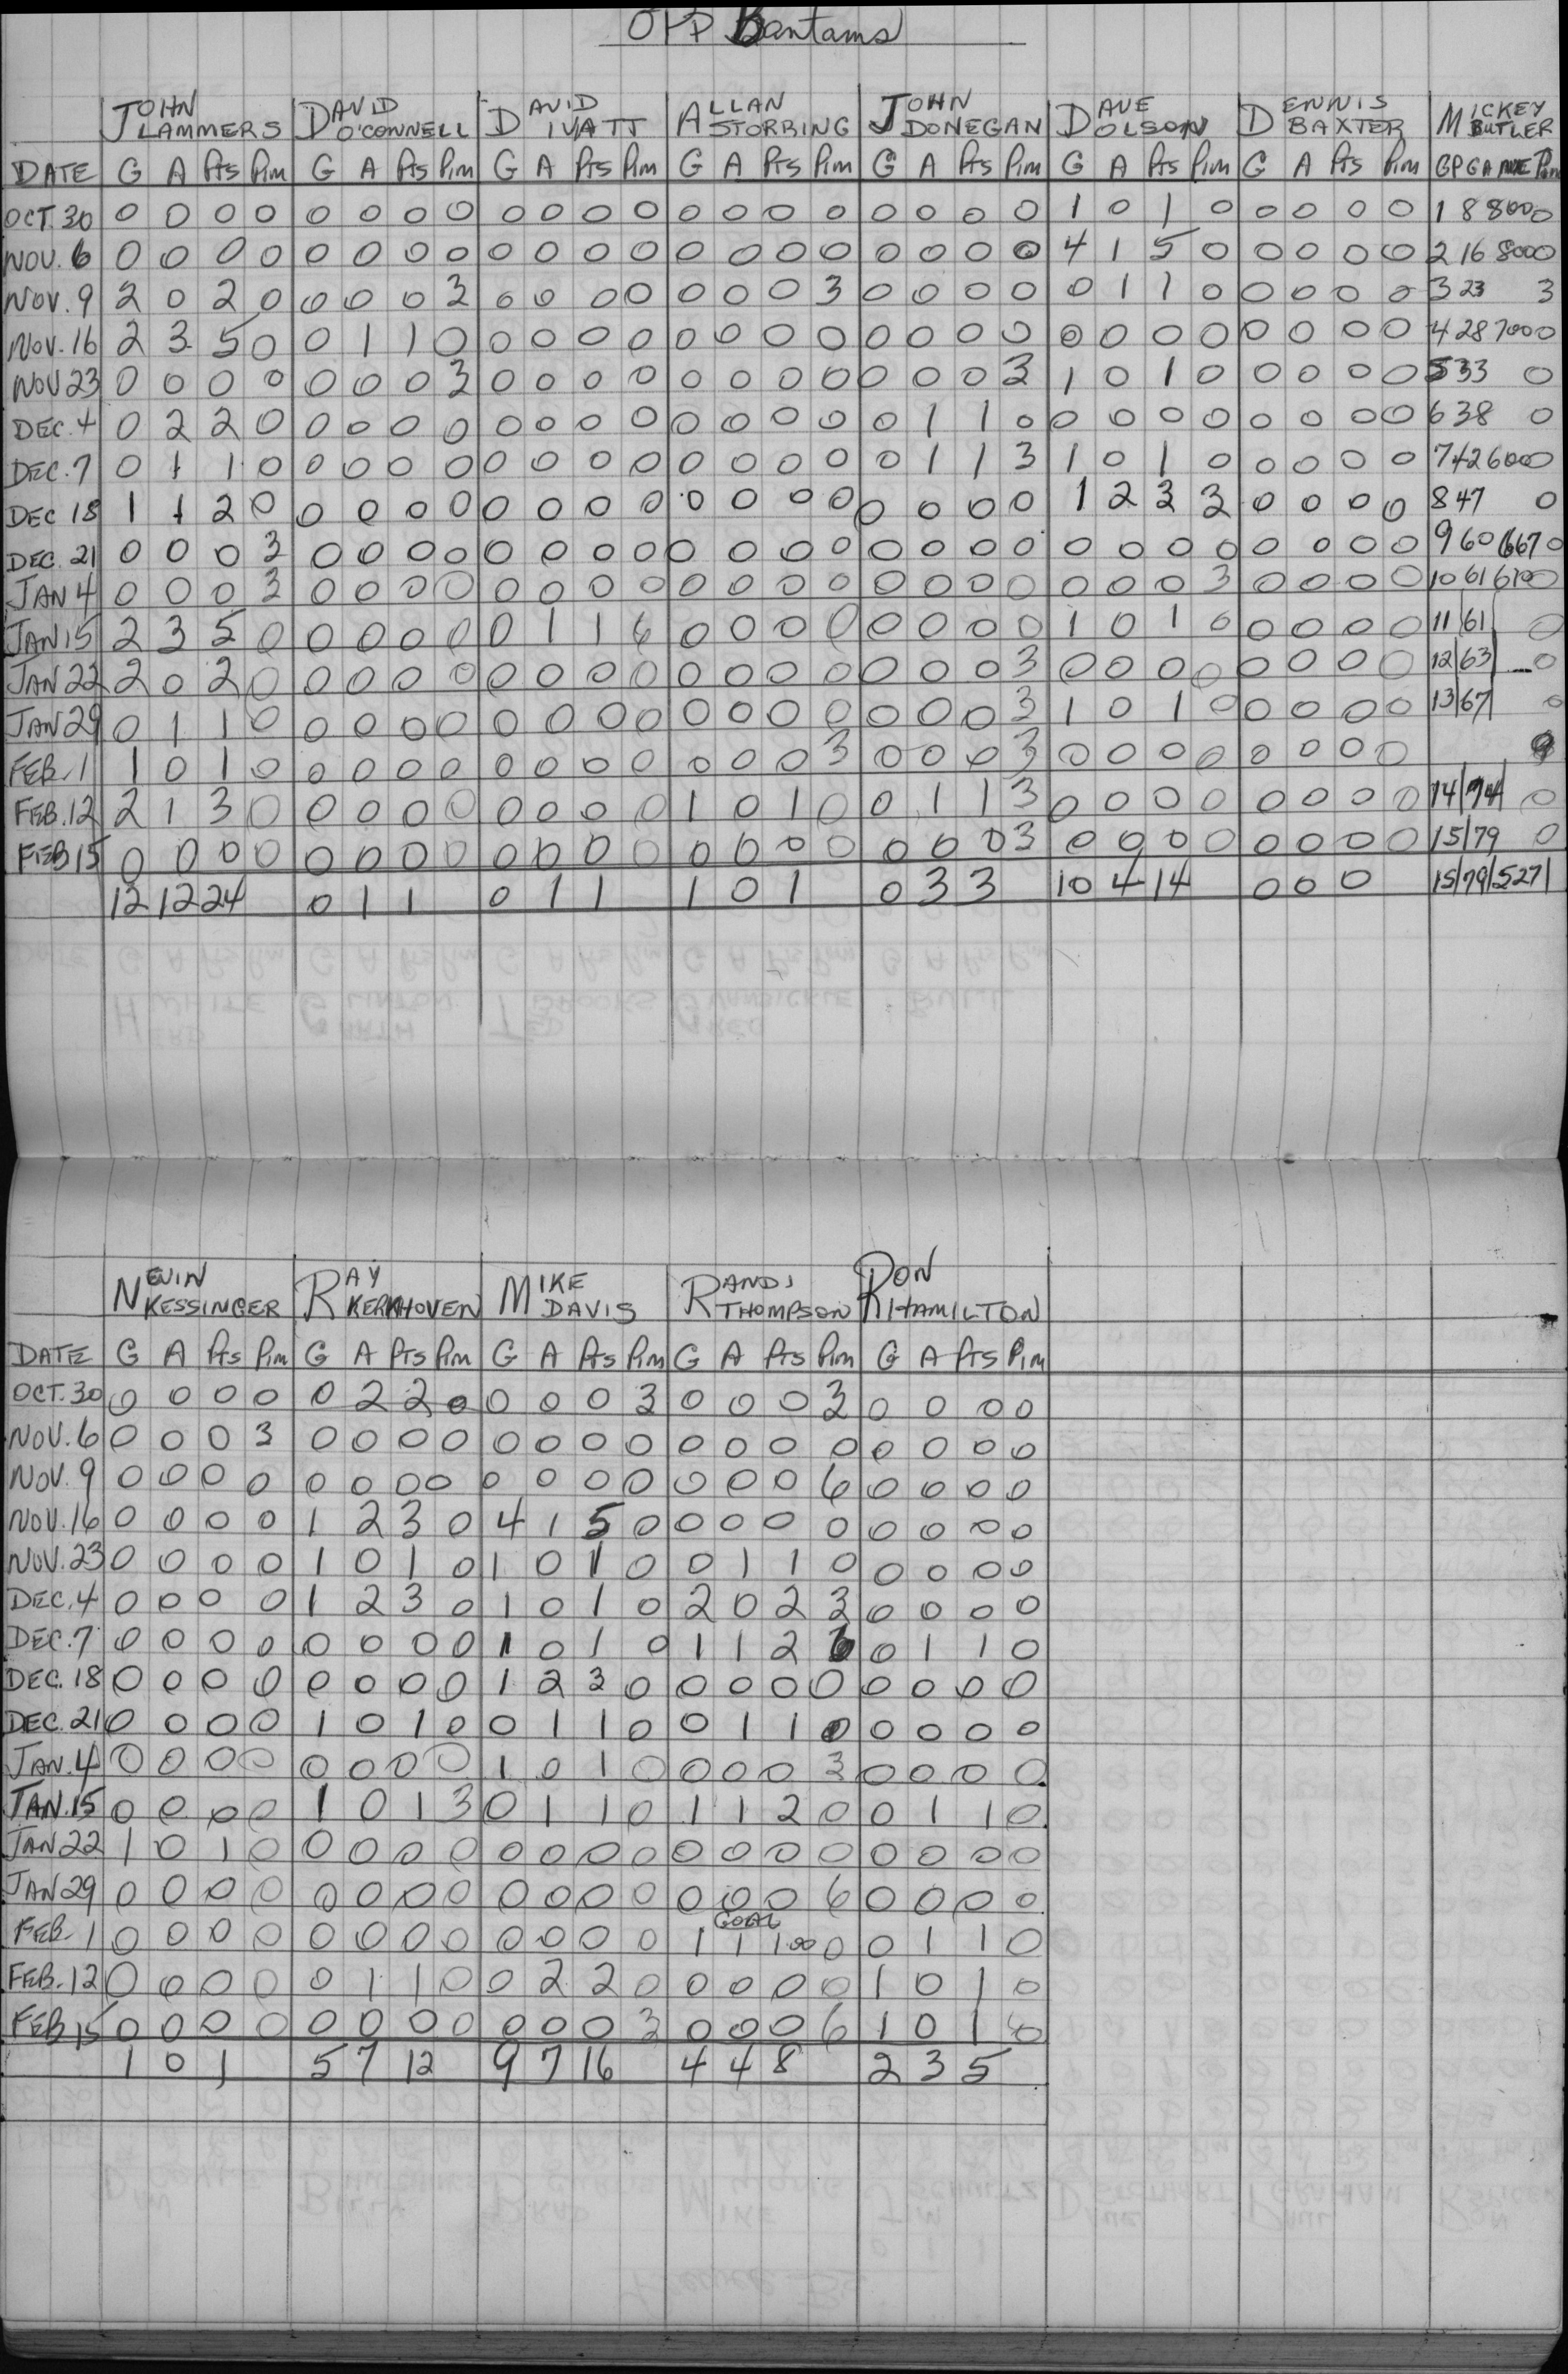 OPP Bantams
JOHN LAMMERS DAVID O'CONNELL DAVID IVATT ALLAN STORRING JOHN DONEGAN DAVE OLSON DENNIS BAXTER MICKEY BUTLER
DATE G A Pts Pim G A Pts Pim G A Pts Pim G A Pts Pim G A Pts Pim G A Pts Pim G A Pts Pim GP GA AVE Pim
OCT. 30 0 0 0 0 0 0 0 0 0 0 0 0 0 0 0 0 0 0 0 0 1 0 1 0 0 0 0 0 1 8 8000
NOV. 6 0 0 0 0 0 0 0 0 0 0 0 0 0 0 0 0 0 0 0 0 4 1 5 0 0 0 0 0 2 16 8000
NOV. 9 2 0 2 0 0 0 0 3 0 0 0 0 0 0 0 3 0 0 0 0 0 1 1 0 0 0 0 0 3 23 3
NOV. 16 2 3 5 0 0 1 1 0 0 0 0 0 0 0 0 0 0 0 0 0 0 0 0 0 0 0 0 0 4 28 7000
NOV 23 0 0 0 0 0 0 0 3 0 0 0 0 0 0 0 0 0 0 0 3 1 0 1 0 0 0 0 0 5 33 0
DEC. 4 0 2 2 0 0 0 0 0 0 0 0 0 0 0 0 0 0 1 1 0 0 0 0 0 0 0 0 0 6 38 0
DEC. 7 0 1 1 0 0 0 0 0 0 0 0 0 0 0 0 0 0 1 1 3 1 0 1 0 0 0 0 0 7 42 6000
DEC 18 1 1 2 0 0 0 0 0 0 0 0 0 0 0 0 0 0 0 0 0 1 2 3 3 0 0 0 0 8 47 0
DEC. 21 0 0 0 3 0 0 0 0 0 0 0 0 0 0 0 0 0 0 0 0 0 0 0 0 0 0 0 0 9 60 667 0
JAN 4 0 0 0 3 0 0 0 0 0 0 0 0 0 0 0 0 0 0 0 0 0 0 0 3 0 0 0 0 10 61 6100
JAN 15 2 3 5 0 0 0 0 0 0 1 1 6 0 0 0 0 0 0 0 0 1 0 1 0 0 0 0 0 11 61 0
JAN 22 2 0 2 0 0 0 0 0 0 0 0 0 0 0 0 0 0 0 0 3 0 0 0 0 0 0 0 0 12 63 0
JAN 29 0 1 1 0 0 0 0 0 0 0 0 0 0 0 0 0 0 0 0 3 1 0 1 0 0 0 0 0 13 67 0
FEB. 1 1 0 1 0 0 0 0 0 0 0 0 0 0 0 0 3 0 0 0 3 0 0 0 0 0 0 0 0
FEB. 12 2 1 3 0 0 0 0 0 0 0 0 0 1 0 1 0 0 1 1 3 0 0 0 0 0 0 0 0 14 74 0
FEB 15 0 0 0 0 0 0 0 0 0 0 0 0 0 0 0 0 0 0 0 3 0 0 0 0 0 0 0 0 15 79 0
12 12 24 0 1 1 0 1 1 1 0 1 0 3 3 10 4 14 0 0 0 15 79 5271
NEVIN KESSINGER RAY KERKHOVEN MIKE DAVIS RANDY THOMPSON RON HAMILTON
DATE G A Pts Pim G A Pts Pim G A Pts Pim G A Pts Pim G A Pts Pim
OCT. 30 0 0 0 0 0 2 2 0 0 0 0 3 0 0 0 3 0 0 0 0
NOV. 6 0 0 0 3 0 0 0 0 0 0 0 0 0 0 0 0 0 0 0 0
NOV. 9 0 0 0 0 0 0 0 0 0 0 0 0 0 0 0 6 0 0 0 0
NOV. 16 0 0 0 0 1 2 3 0 4 1 5 0 0 0 0 0 0 0 0 0
NOV. 23 0 0 0 0 1 0 1 0 1 0 1 0 0 1 1 0 0 0 0 0
DEC. 4 0 0 0 0 1 2 3 0 1 0 1 0 2 0 2 3 0 0 0 0
DEC. 7 0 0 0 0 0 0 0 0 1 0 1 0 1 1 2 6 0 1 1 0
DEC. 18 0 0 0 0 0 0 0 0 1 2 3 0 0 0 0 0 0 0 0 0
DEC. 21 0 0 0 0 1 0 1 0 0 1 1 0 0 1 1 0 0 0 0 0
JAN. 4 0 0 0 0 0 0 0 0 1 0 1 0 0 0 0 3 0 0 0 0
JAN. 15 0 0 0 0 1 0 1 3 0 1 1 0 1 1 2 0 0 1 1 0
JAN 22 1 0 1 0 0 0 0 0 0 0 0 0 0 0 0 0 0 0 0 0
JAN 29 0 0 0 0 0 0 0 0 0 0 0 0 0 0 0 6 0 0 0 0
GOAL
FEB. 1 0 0 0 0 0 0 0 0 0 0 0 0 1 1 1.00 0 0 1 1 0
FEB. 12 0 0 0 0 0 1 1 0 0 2 2 0 0 0 0 0 1 0 1 0
FEB 15 0 0 0 0 0 0 0 0 0 0 0 3 0 0 0 6 1 0 1
1 0 1 5 7 12 9 7 16 4 4 8 2 3 5